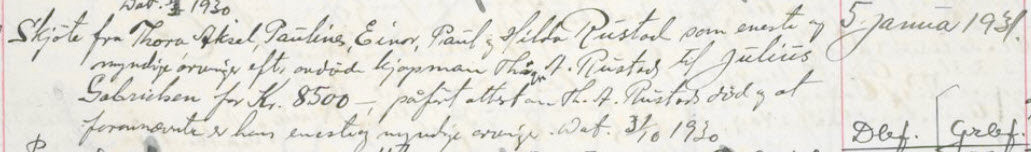 Dat. 1930
Skjøte fra Thora, Aksel, Pauline, Einar, Paul og Hilda Rustad som eneste og
myndige arvinger efter avdøde kjøpman A. Rustad til Julius
Gabrielsen for Kr. 8500.-, påført attest om Th. A. Rustads død og at
forannevnte er hans eneste og myndige arvinger. Dat. 31/10 1930
5. januar 1931.
Dbf. Grbf.